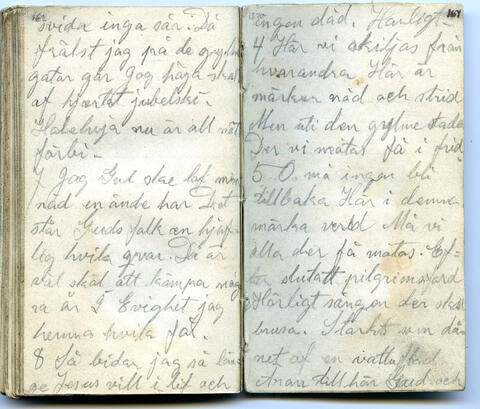 162
svida inga sår. Då
frälst jag på de gyllne
gator går Jag höga skri
af hjertat jubelskri
Haleluja nu är all nöd
förbi.
7 Jag Gud ske lof min
nöd en ände har Det
står Guds folk en
lig hvila qvar. Då är
väl skäl att kämpa
ra är I Evighet jag
hemma hvila får.
8 Så bidar jag så län
ge Jesus vill i lif och
164
ingen död. Harligt
4 Här vi skiljas från
hvarandra Här är
mörker nöd och strid
Men uti den gyllne stade
Der vi mötas få i frid
5 O, må ingen bli
tillbaka Här i denna
mörka verld Må vi
alla der få mötas. Ef-
ter slutatt pilgrimsferd
Härligt sången der skall
brusa. Starkt som då
net af en vattuflod
Äran tillhör Gud och